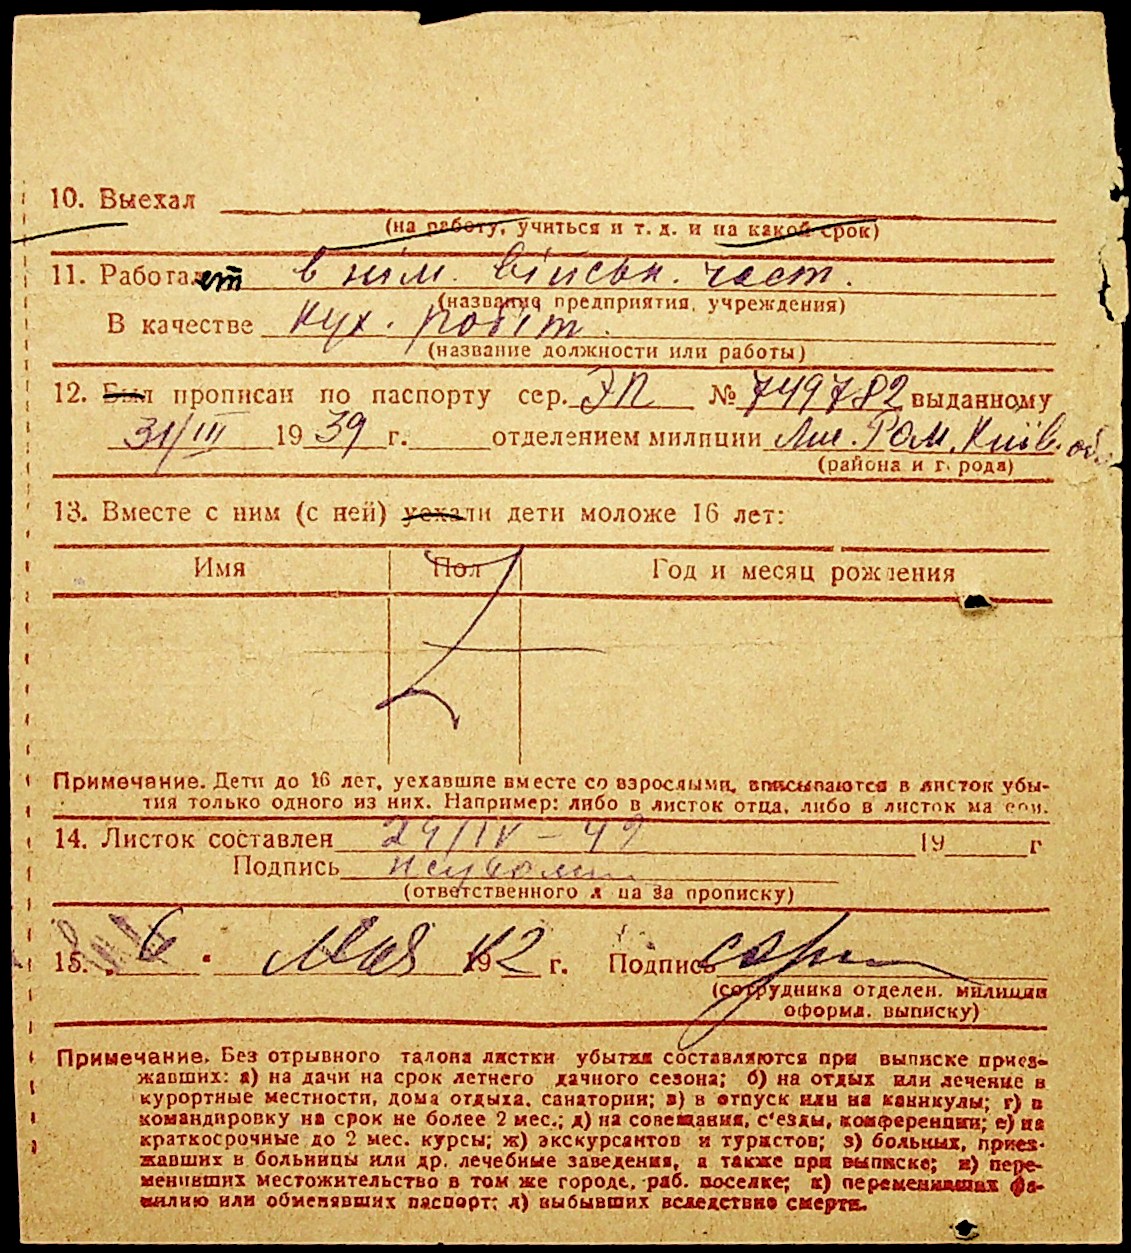 10. Выехал
(на работу, учиться и т. д. и на какой срок)
11. Работает в нім. військ. част.
(название предприятия, учреждения)
В качестве кух. робіт.
(название должности или работы)
12. Был прописан по паспорту сер. ЭП № 749782 выданному
31/III 1939 г. отделением милиции Ром. Київ. обл.
(района и города)
13. Вместе с ним (с ней) уехали дети моложе 16 лет:
Имя Пол Год и месяц рождения
Примечание. Дети до 16 лет, уехавшие вместе со взрослыми, вписываются в листок убы-
тия только одного из них. Например: либо в листок отца, либо в листок матери.
14. Листок составлен 24/IV - 42 19 г
Подпись
(ответственного лица за прописку)
15. 6 . Мая 1942 г. Подпись
(сотрудника отделен. милиции
оформл. выписку)
Примечание. Без отрывного талона листки убытия составляются при выписке приез-
жавших: а) на дачи на срок летнего дачного сезона; б) на отдых или лечение в
курортные местности, дома отдыха, санатории; в) в отпуск или на каникулы; г) в
командировку на срок не более 2 мес.; д) на совещания, с'езды, конференции; е) на
краткосрочные до 2 мес. курсы; ж) экскурсантов и туристов; з) больных, приез-
жавших в больницы или др. лечебные заведения, а также при выписке; и) пере-
менивших местожительство в том же городе, раб. поселке; к) переменивших фа-
милию или обменявших паспорт; л) выбывших вследствие смерти.